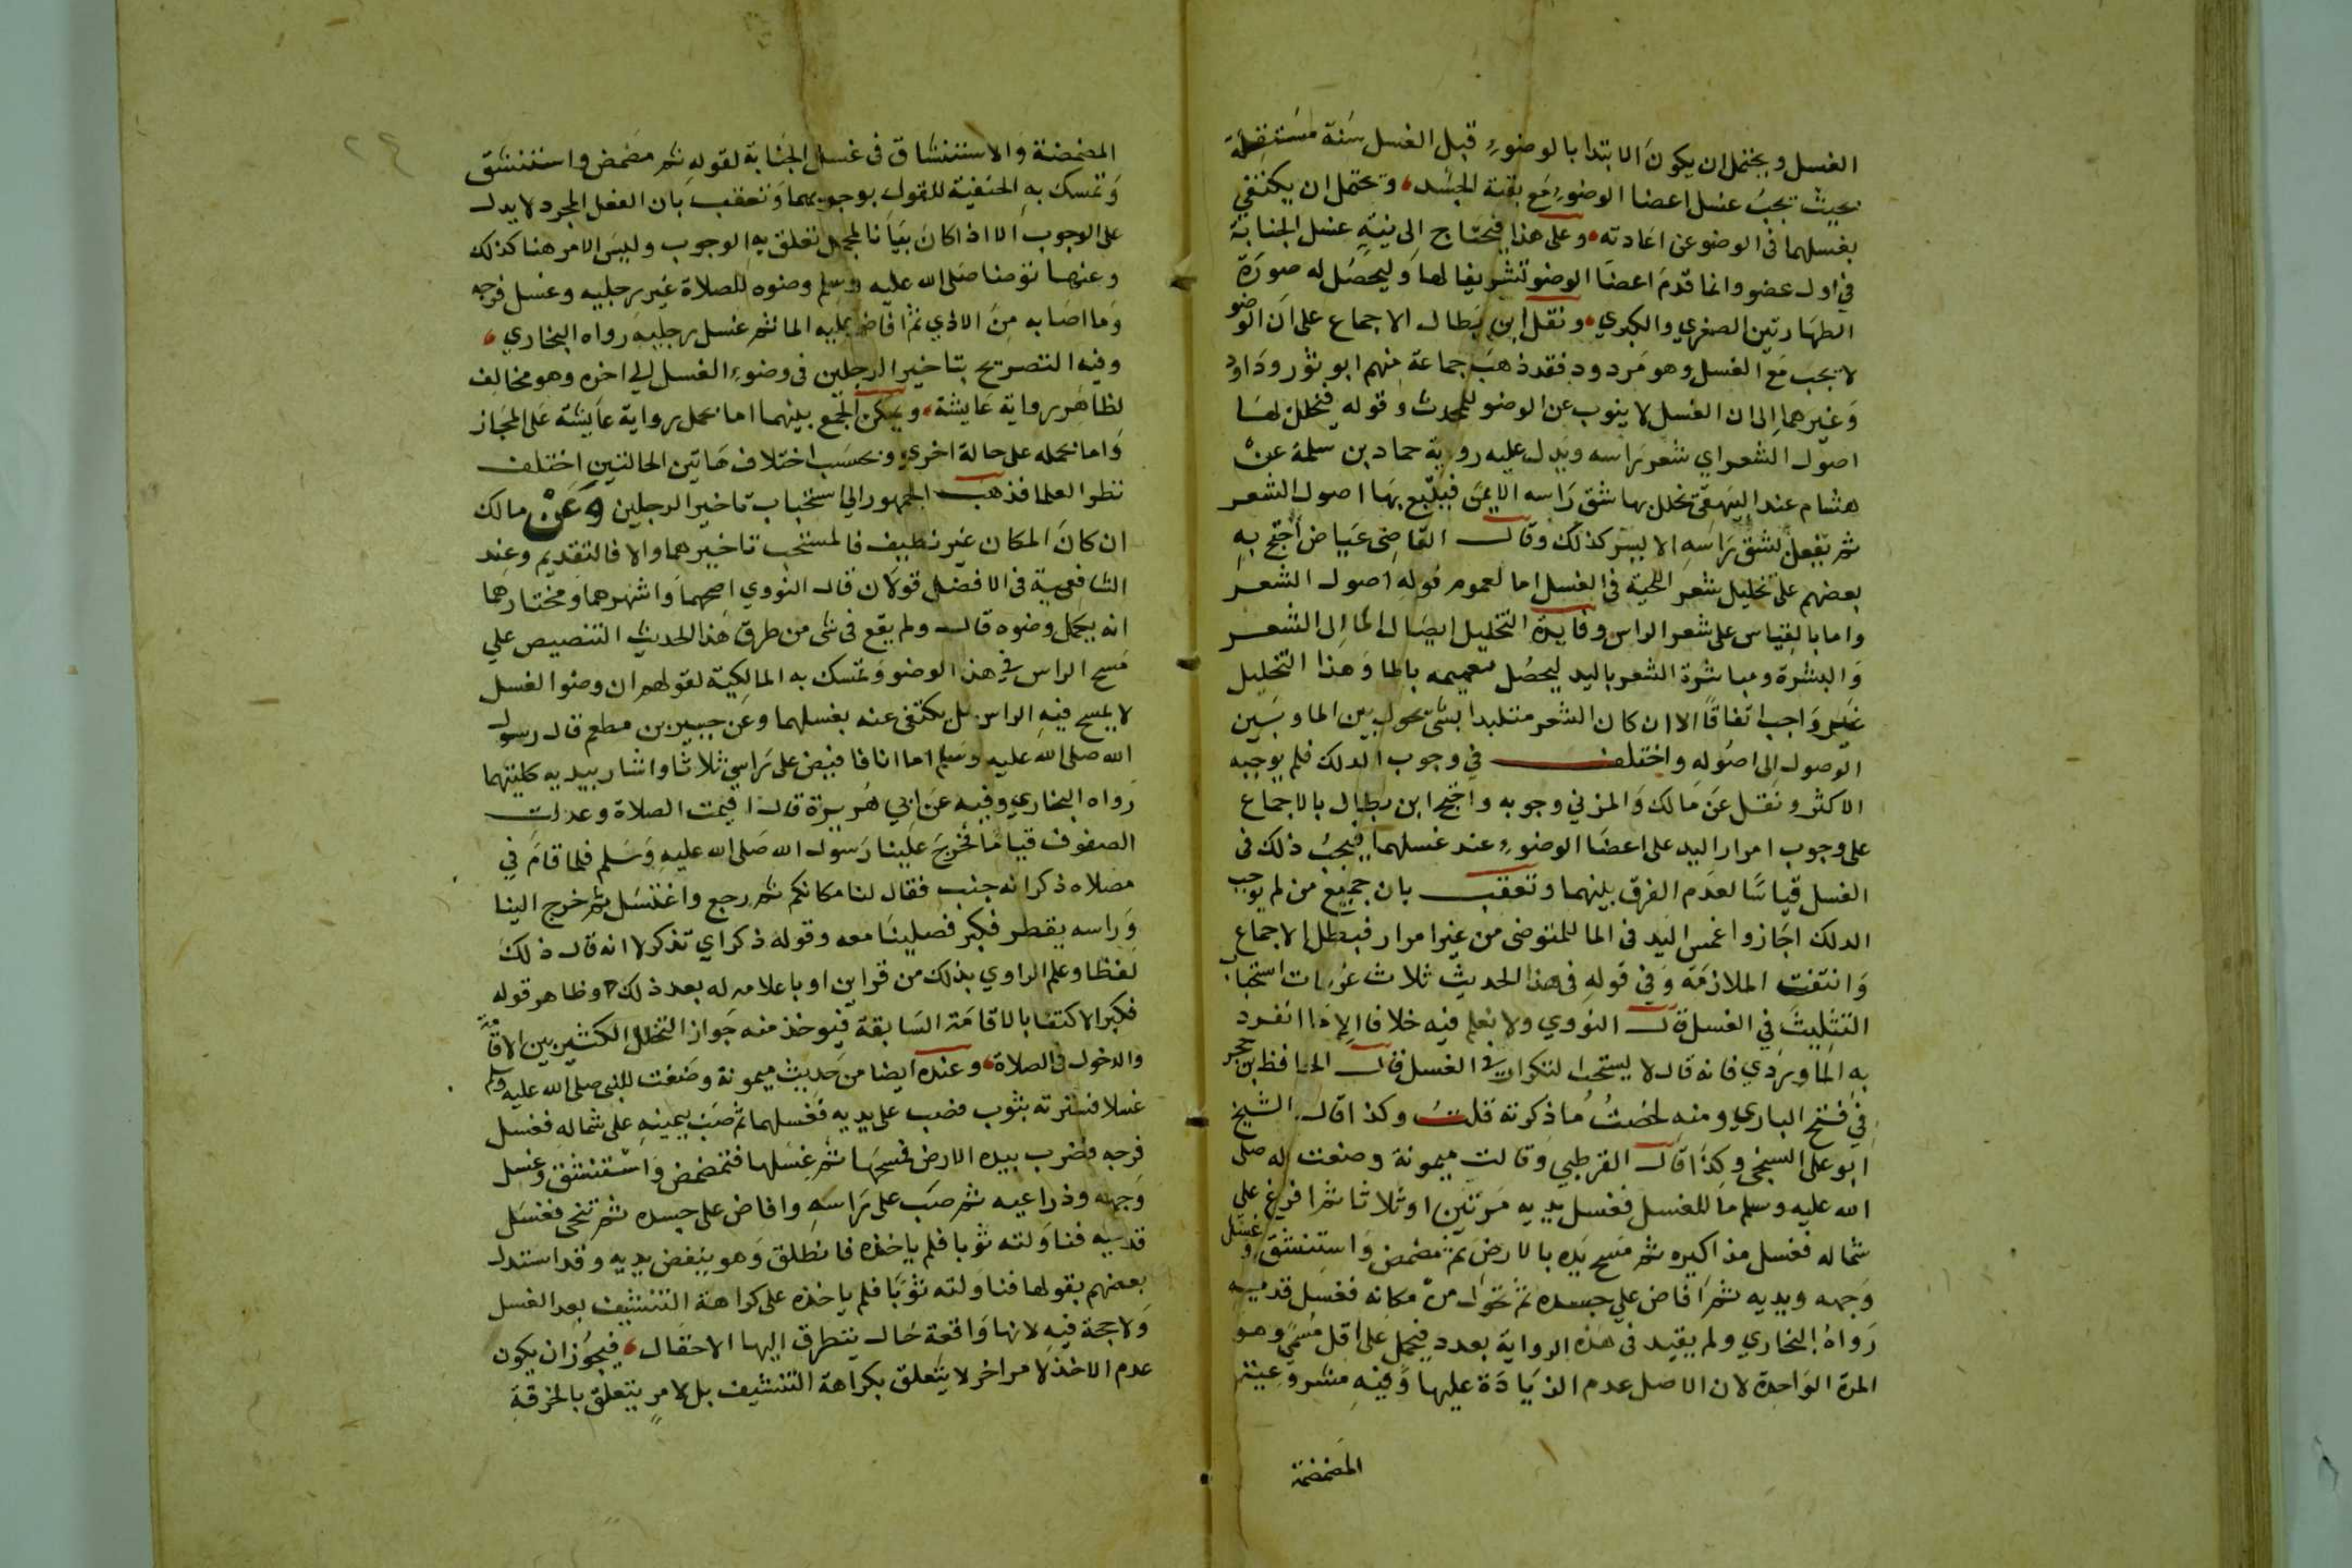 الغسل ويحتمل ان يكون الابتدا بالوضوء قبل الغسل سنة مستقلة
بحيث يجب غسل اعضا الوضوء مع بقية الجسد، ويحتمل ان يكتفي
بغسلهما في الوضو عن اعادته، وعلى هذا فيحتاج الى نية غسل الجنابة
في اول عضو وانما قدم اعضا الوضو تشريفا لها وليحصل له صورة
الطهارتين الصغري والكبري، ونقل ابن بطال الاجماع على ان الوضو
لا يجب مع الغسل وهو مردود فقد ذهب جماعة منهم ابو ثور وداود
وغيرهما الى ان الغسل لا ينوب عن الوضو للمحدث وقوله فيخلل لها
اصول الشعر اي شعر راسه ويدل عليه رواية حماد بن سلمة عن
هشام عند البيهقي يخلل بها شق راسه الايمن فيتبع بها اصول الشعر
ثم يفعل بشق راسه الايسر كذلك وقال القاضي عياض احتج به
بعضهم على تخليل شعر اللحية في الغسل اما لعموم قوله اصول الشعر
واما بالقياس على شعر الراس وفايدة التخليل ايصال الما الى الشعر
والبشرة ومباشرة الشعر باليد ليحصل تعميمه بالما وهذا التخليل
غير واجب اتفاقا الا ان كان الشعر متلبدا بشى يحول بين الما وبين
الوصول الى اصوله واختلف في وجوب الدلك فلم يوجبه
الاكثر ونقل عن مالك والمزني وجوبه واحتج ابن بطال بالاجماع
على وجوب امرار اليد على اعضا الوضوء عند غسلهما فيجب ذلك في
الغسل قياسا لعدم الفرق بينهما وتعقب بان جميع من لم يوجب
الدلك اجازوا غمس اليد في الما للمتوضى من غير امرار فبطل الاجماع
وانتفت الملازمة وفي قوله في هذا الحديث ثلاث غرفات استحباب
التثليث في الغسل قال النووي ولا نعلم فيه خلافا الا ما انفرد
به الماوردي فانه قال لا يستحب التكرار في الغسل قال الحافظ بن حجر
في فتح الباري ومنه لخصت ما ذكرته قلت وكذا قال الشيخ
ابو على السنجي وكذا قال القرطبي وقالت ميمونة وضعت له صلى
الله عليه وسلم ما للغسل فغسل يديه مرتين او ثلاثا ثم افرغ على
شماله فغسل مذاكيره ثم مسح يده بالارض ثم مضمض واستنشق وغسل
وجهه ويديه ثم افاض علي جسده ثم تحول من مكانه فغسل قدميه
رواه البخاري ولم يقيد في هذه الرواية بعدد فيحمل على اقل مسمى وهو
المرة الواحدة لان الاصل عدم الزيادة عليها وفيه مشروعية
المضمضة
المضمضة والاستنشاق في غسل الجنابة لقوله ثم مضمض واستنشق
وتمسك به الحنفية للقول بوجوبهما وتعقب بان الفعل المجرد لا يدل
على الوجوب الا اذا كان بيانا لمجمل تعلق به الوجوب وليس الامر هنا كذلك
وعنها توضا صلى الله عليه وسلم وضوه للصلاة غير رجليه وغسل فرجه
وما اصابه من الاذي ثم افاض عليه الما ثم غسل رجليه رواه البخاري،
وفيه التصريح بتاخير الرجلين في وضوء الغسل الى اخره وهو مخالف
لظاهر رواية عايشة، ويمكن الجمع بينهما اما بحمل رواية عايشة على المجاز
واما بحمله على حالة اخري وبحسب اختلاف هاتين الحالتين اختلف
نظر العلما فذهب الجمهور الى استحباب تاخير الرجلين وعن مالك
ان كان المكان غير نظيف فالمستحب تاخيرهما والا فالتقديم وعند
الشافعية في الافضل قولان قال النووي اصحهما واشهرهما ومختارهما
انه يكمل وضوه قال ولم يقع في شى من طرق هذا الحديث التنصيص علي
مسح الراس في هذا الوضو وتمسك به المالكية لقولهم ان وضوا الغسل
لا يمسح فيه الراس بل يكتفى عنه بغسلهما وعن جبير بن مطعم قال رسول
الله صلى الله عليه وسلم اما انا فافيض على راسي ثلاثا واشار بيديه كلتيهما
رواه البخاري وفيه عن ابي هريرة قال اقيمت الصلاة وعدلت
الصفوف قياما فخرج علينا رسول الله صلى الله عليه وسلم فلما قام في
مصلاه ذكر انه جنب فقال لنا مكانكم ثم رجع واغتسل ثم خرج الينا
وراسه يقطر فكبر فصلينا معه وقوله ذكر اي تذكر لا انه قال ذلك
لفظا وعلم الراوي بذلك من قراين او باعلامه له بعد ذلك وظاهر قوله
فكبر الاكتفا بالاقامة السابقة فيوخذ منه جواز التخلل الكثير بين الاقامة
والدخول في الصلاة، وعنده ايضا من حديث ميمونة وضعت للنبي صلى الله عليه وسلم
غسلا فسترته بثوب فصب على يديه فغسلهما ثم صب بيمينه على شماله فغسل
فرجه فضرب بيده الارض فمسحها ثم غسلها فتمضمض واستنشق وغسل
وجهه وذراعيه ثم صب على راسه وافاض على جسده ثم تنحى فغسل
قدميه فناولته ثوبا فلم ياخذه فانطلق وهو ينفض يديه وقد استدل
بعضهم بقولها فناولته ثوبا فلم ياخذه على كراهة التنشيف بعد الغسل
ولا حجة فيه لانها واقعة حال يتطرق اليها الاحتمال، فيجوز ان يكون
عدم الاخذ لامر اخر لا يتعلق بكراهة التنشيف بل لامر يتعلق بالخرقة